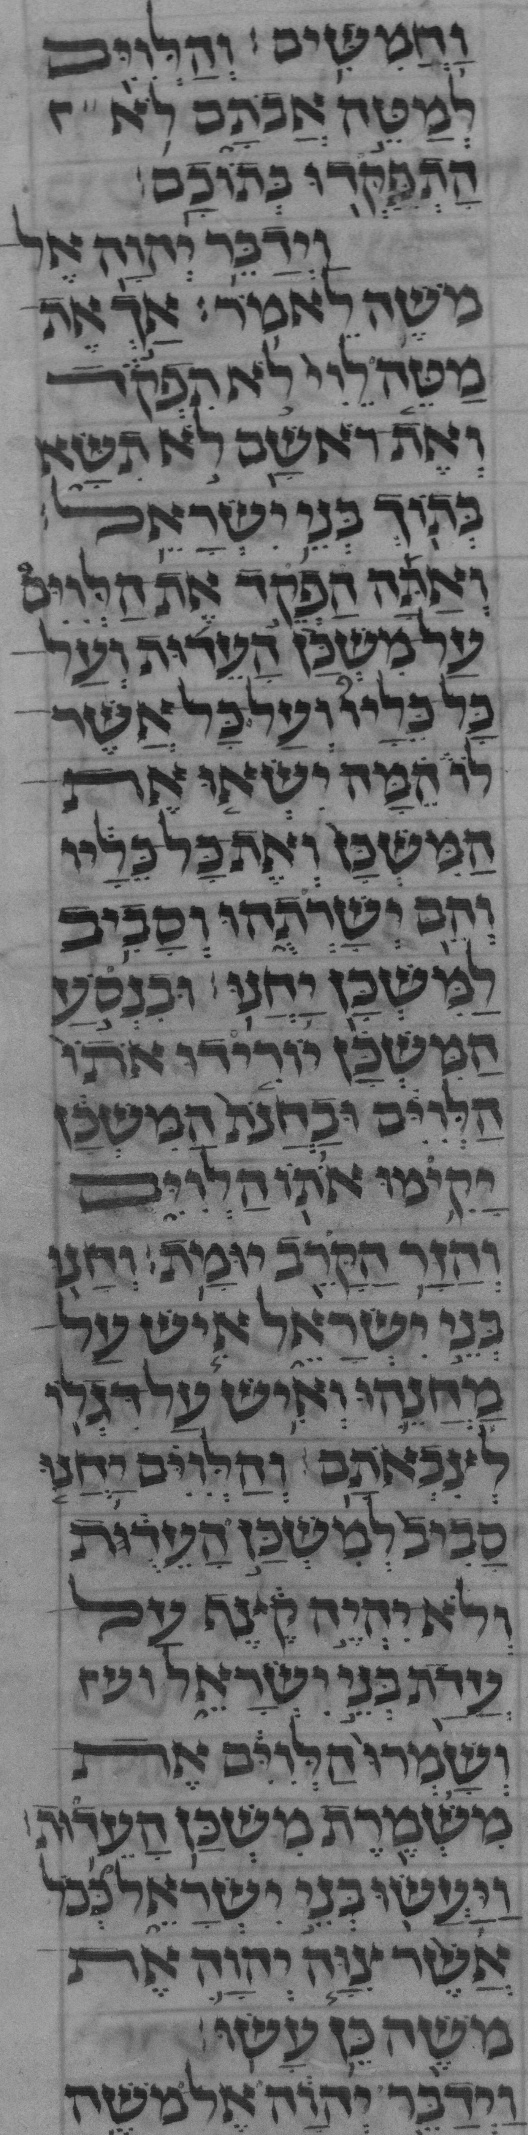 וַחֲמִשִּׁים׃ וְהַלְוִיִּם
לְמַטֵּה אֲבֹתָם לֹא
הָתְפָּקְדוּ בְּתוֹכָם׃
וַיְדַבֵּר יְהוָה אֶל
מֹשֶׁה לֵּאמֹר׃ אַךְ אֶת
מַטֵּה לֵוִי לֹא תִפְקֹד
וְאֶת רֹאשָׁם לֹא תִשָּׂא
בְּתוֹךְ בְּנֵי יִשְׂרָאֵל׃
וְאַתָּה הַפְקֵד אֶת הַלְוִיִּם
עַל מִשְׁכַּן הָעֵדוּת וְעַל
כָּל כֵּלָיו וְעַל כָּל אֲשֶׁר
לוֹ הֵמָּה יִשְׂאוּ אֶת
הַמִּשְׁכָּן וְאֶת כָּל כֵּלָיו
וְהֵם יְשָׁרְתֻהוּ וְסָבִיב
לַמִּשְׁכָּן יַחֲנוּ׃ וּבִנְסֹעַ
הַמִּשְׁכָּן יוֹרִידוּ אֹתוֹ
הַלְוִיִּם וּבַחֲנֹת הַמִּשְׁכָּן
יָקִימוּ אֹתוֹ הַלְוִיִּם
וְהַזָּר הַקָּרֵב יוּמָת׃ וְחָנוּ
בְּנֵי יִשְׂרָאֵל אִישׁ עַל
מַחֲנֵהוּ וְאִישׁ עַל דִּגְלוֹ
לְצִבְאֹתָם׃ וְהַלְוִיִּם יַחֲנוּ
סָבִיב לְמִשְׁכַּן הָעֵדֻת
וְלֹא יִהְיֶה קֶצֶף עַל
עֲדַת בְּנֵי יִשְׂרָאֵל
וְשָׁמְרוּ הַלְוִיִּם אֶת
מִשְׁמֶרֶת מִשְׁכַּן הָעֵדוּת׃
וַיַּעֲשׂוּ בְּנֵי יִשְׂרָאֵל כְּכֹל
אֲשֶׁר צִוָּה יְהוָה אֶת
מֹשֶׁה כֵּן עָשׂוּ׃
וַיְדַבֵּר יְהוָה אֶל מֹשֶׁה